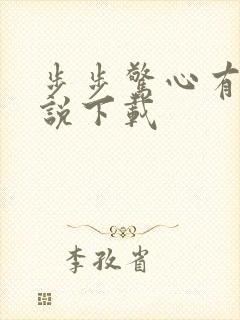 步步驚心有
說下載
李孜省